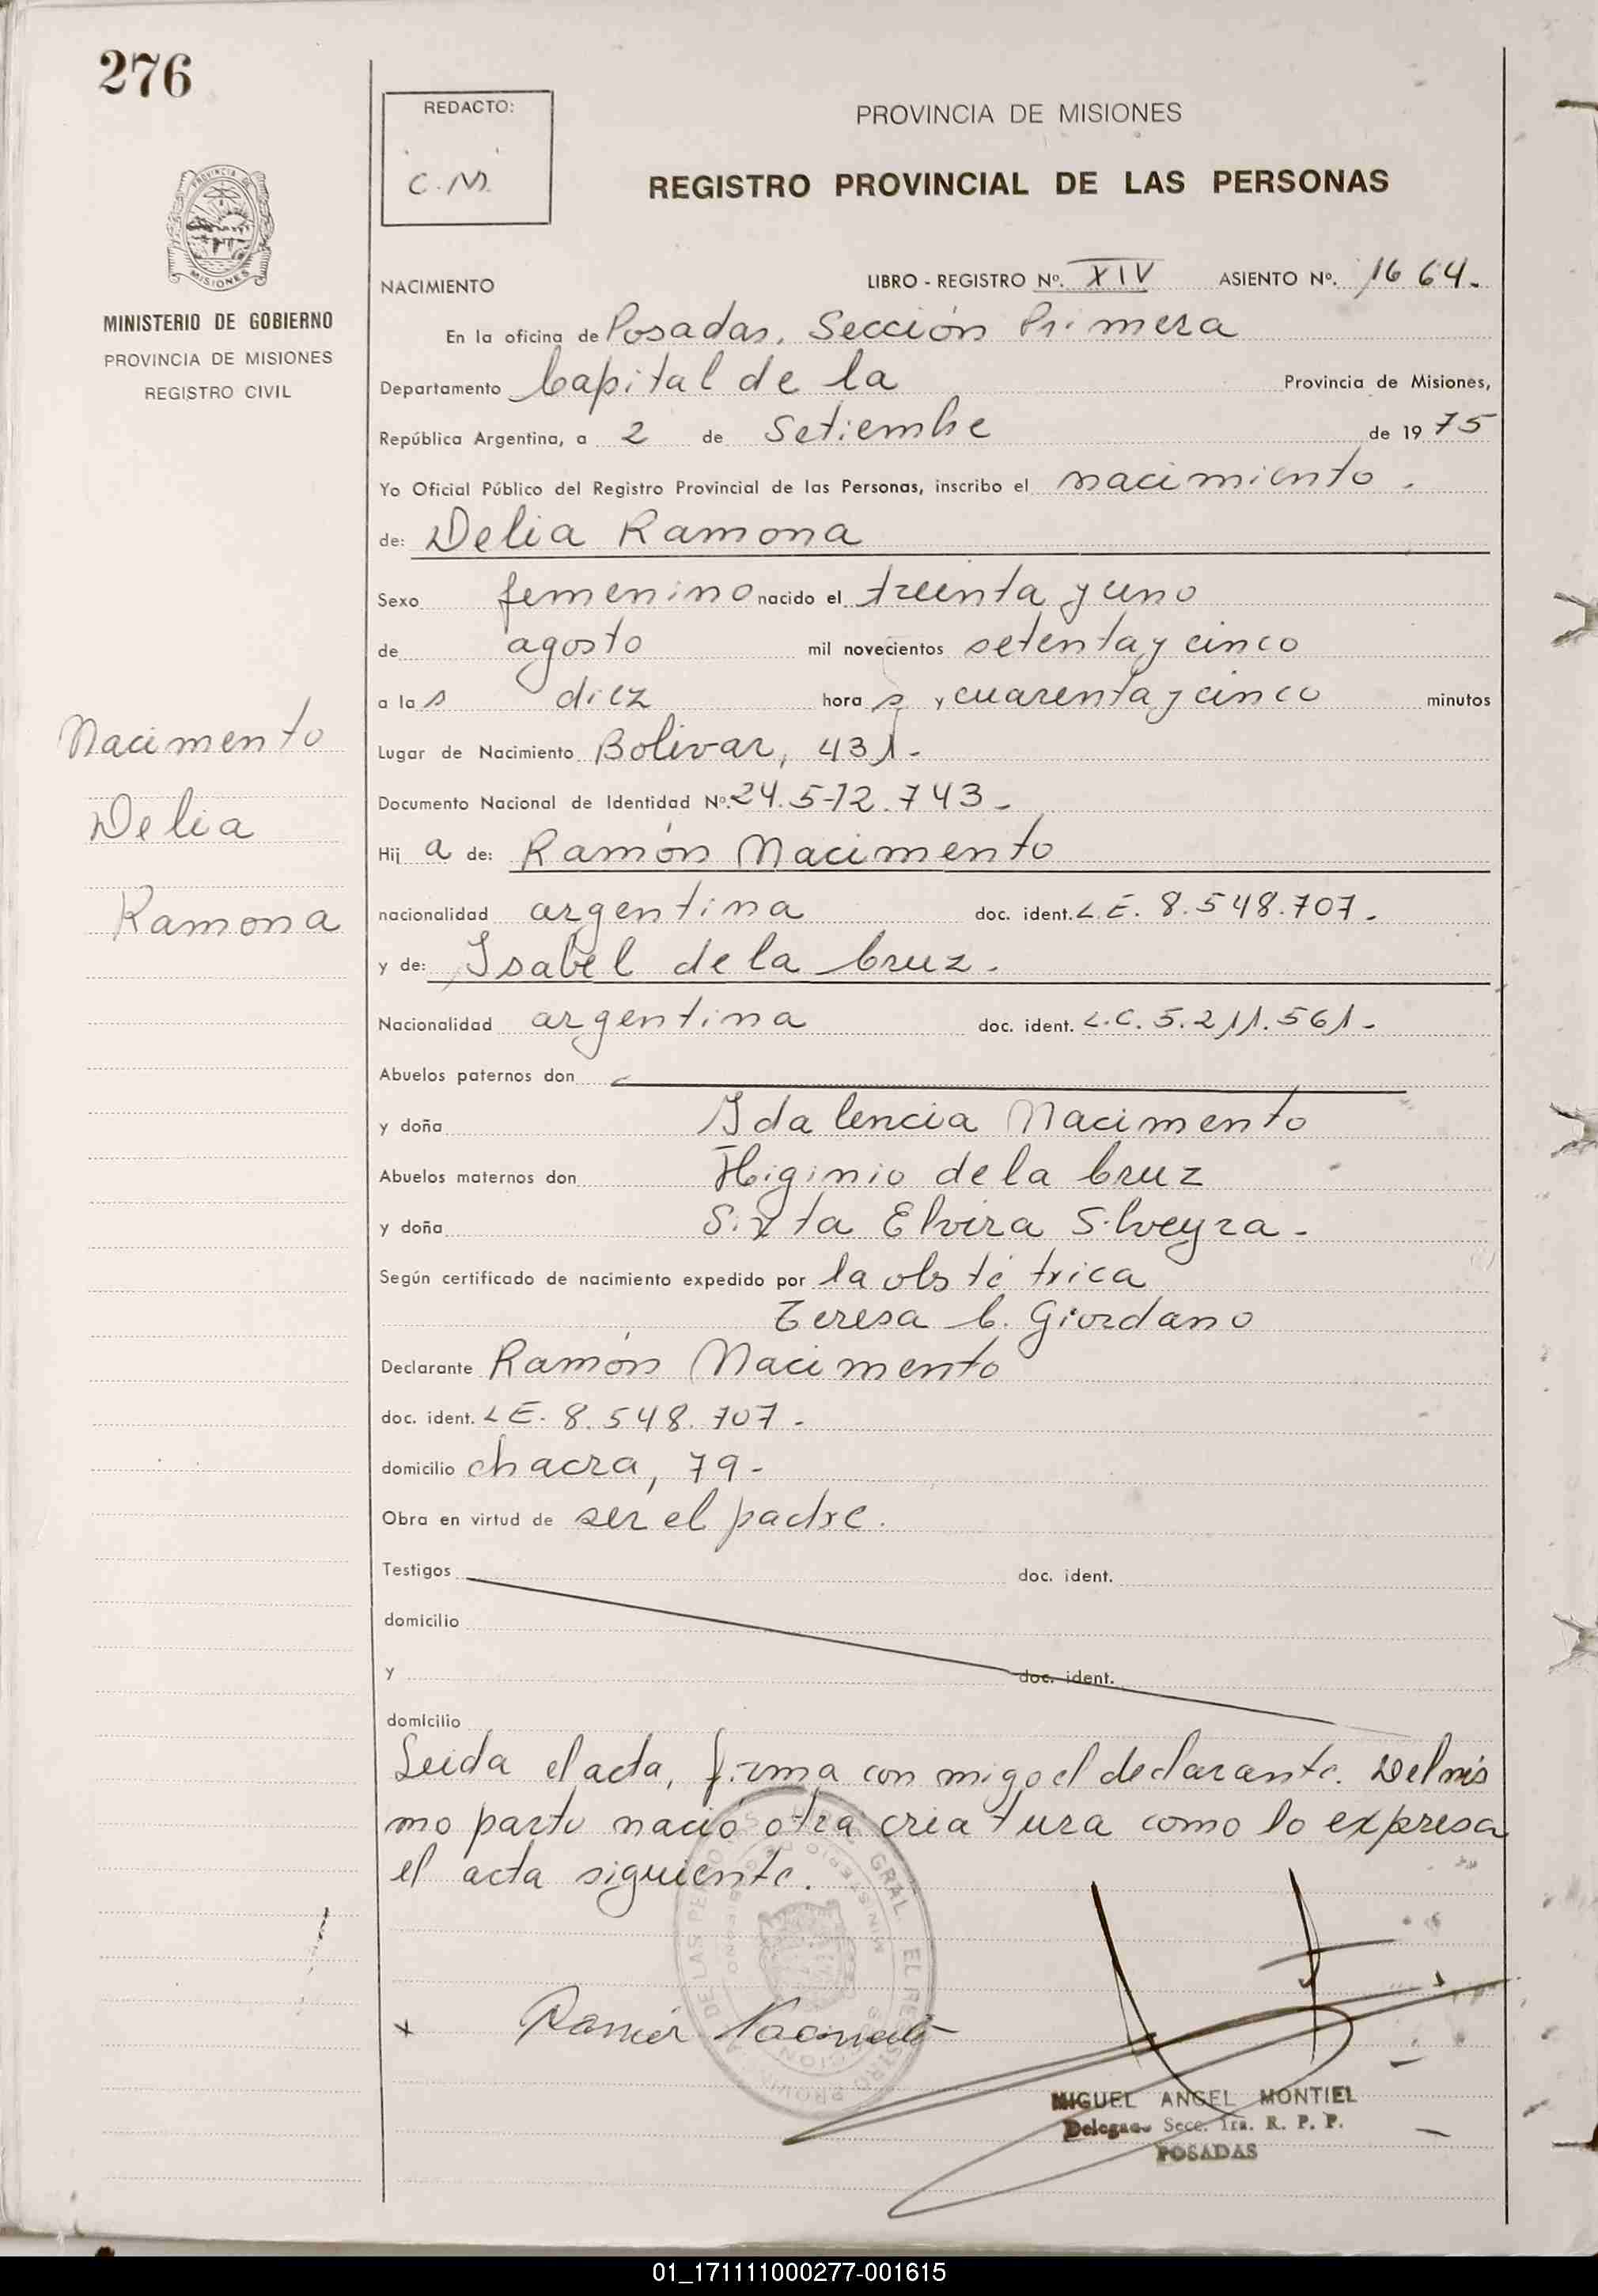 276
REDACTO:
C.M.
PROVINCIA DE MISIONES
REGISTRO PROVINCIAL DE LAS PERSONAS
PROVINCIA DE
MISIONES
MINISTERIO DE GOBIERNO
PROVINCIA DE MISIONES
REGISTRO CIVIL
NACIMIENTO LIBRO - REGISTRO Nº. XIV ASIENTO Nº. 1664.
En la oficina de Posadas, Sección Primera
Departamento Capital de la Provincia de Misiones,
República Argentina, a 2 de Setiembre de 1975
Yo Oficial Público del Registro Provincial de las Personas, inscribo el nacimiento.
de: Delia Ramona
Sexo femenino nacido el treinta y uno
de agosto mil novecientos setenta y cinco
a las diez horas y cuarenta y cinco minutos
Nacimento
Delia
Ramona
Lugar de Nacimiento Bolivar, 431.-
Documento Nacional de Identidad Nº. 24.512.743.-
Hija de: Ramón Nacimento
nacionalidad argentina doc. ident. L.E. 8.548.707.-
y de: Isabel de la Cruz.
Nacionalidad argentina doc. ident. L.C. 5.211.561.-
Abuelos paternos don
y doña Idalencia Nacimento
Abuelos maternos don Higinio de la Cruz
y doña Sixta Elvira Silveyra.-
Según certificado de nacimiento expedido por la obstétrica
Teresa C. Giordano
Declarante Ramón Nacimento
doc. ident. L.E. 8.548.707.-
domicilio chacra, 79.-
Obra en virtud de ser el padre.
Testigos doc. ident.
domicilio
y doc. ident.
domicilio
Leida el acta, firma con migo el declarante. Del mis
mo parto nació otra criatura como lo expresa
el acta siguiente.
x Ramón Nacimento
MIGUEL ANGEL MONTIEL
Delegado Secc. 1ra. R. P. P.
POSADAS
01_171111000277-001615